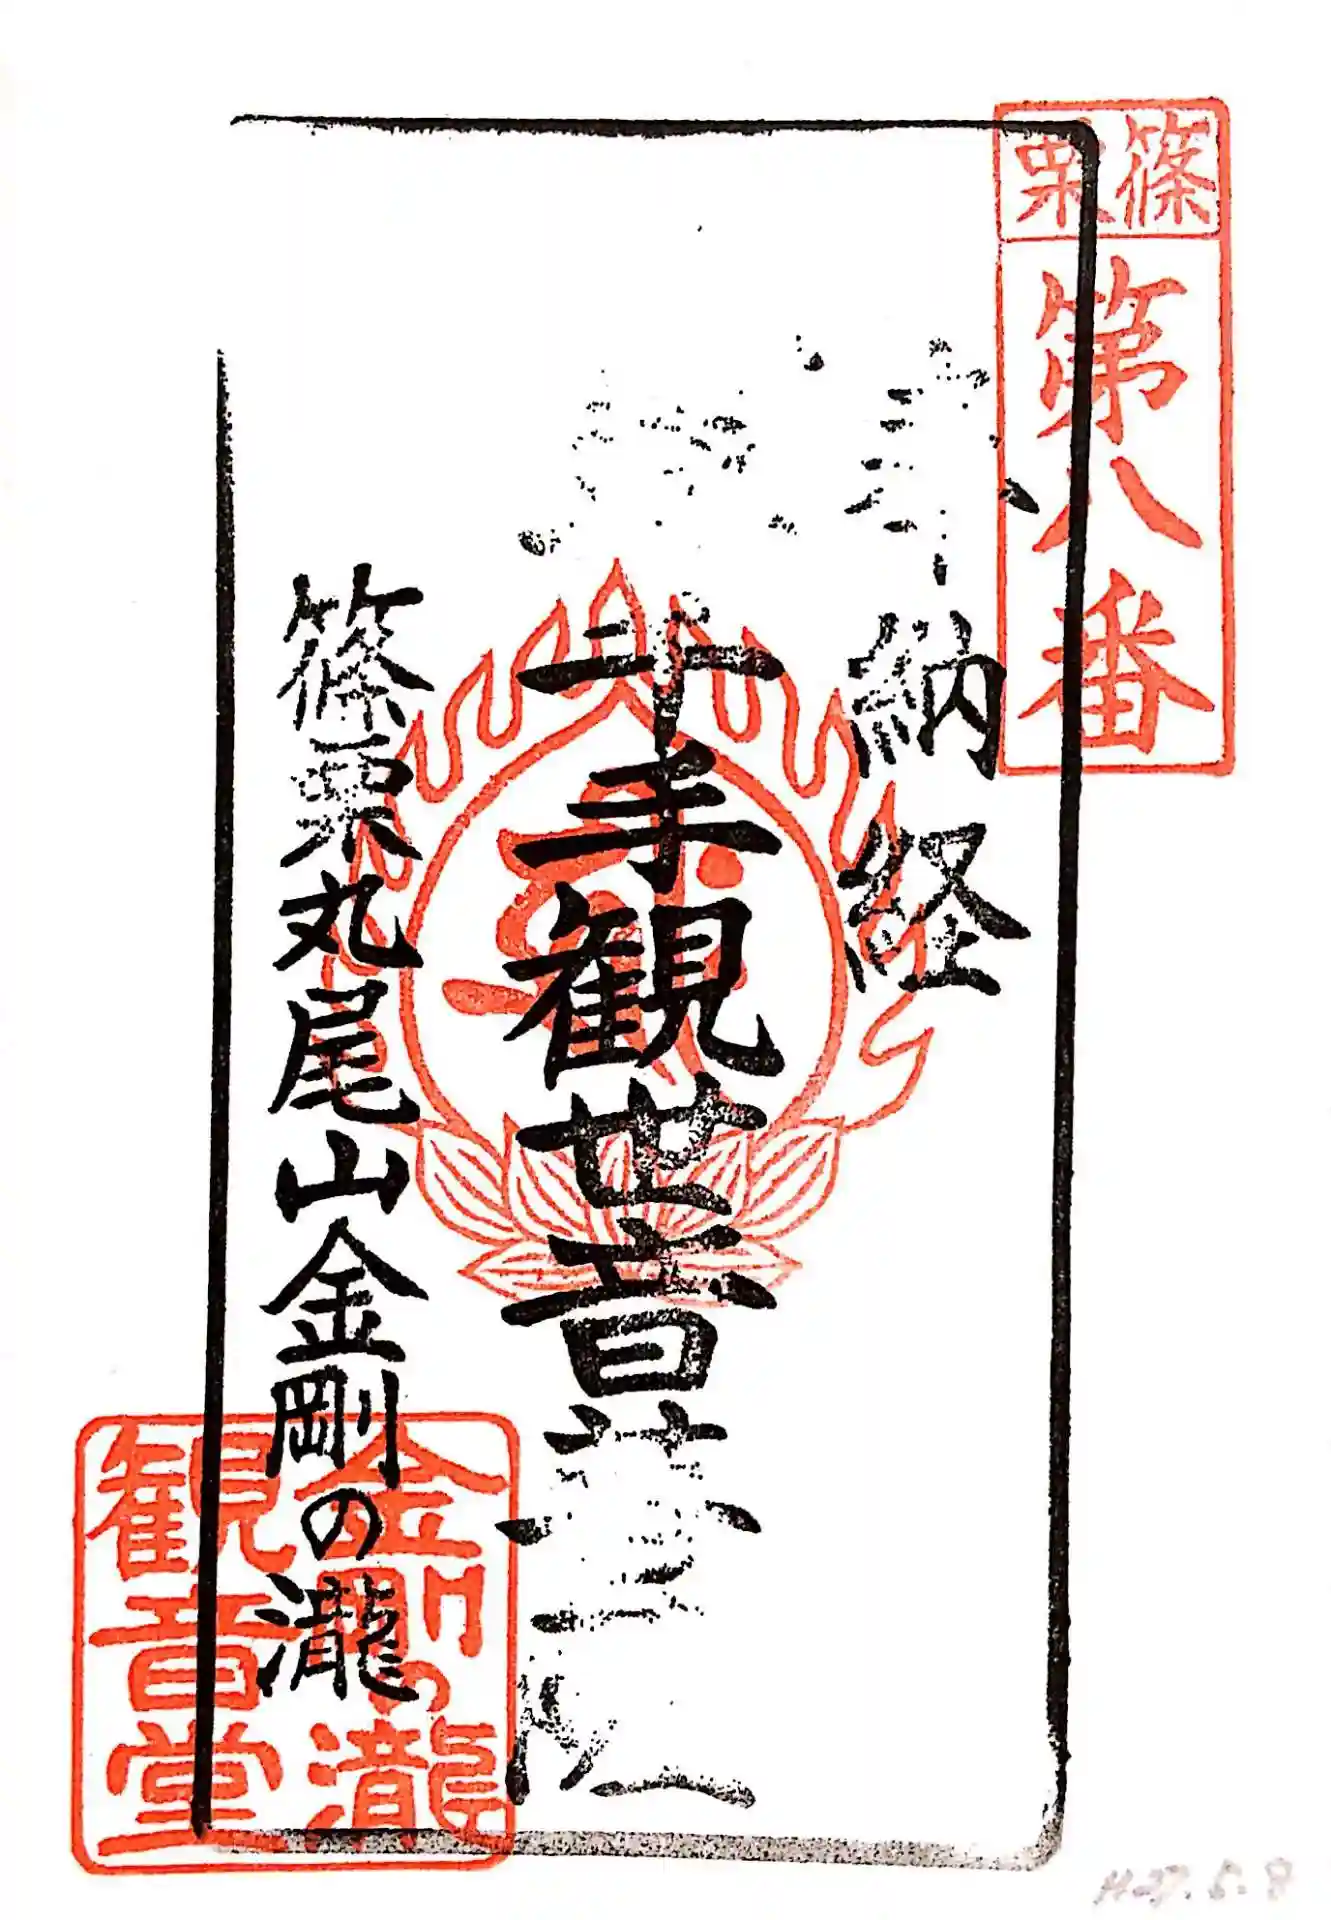 篠栗
第八番
納経
千手観世音菩薩
篠栗丸尾山金剛の瀧
金剛の瀧
観音堂
H27.5.8